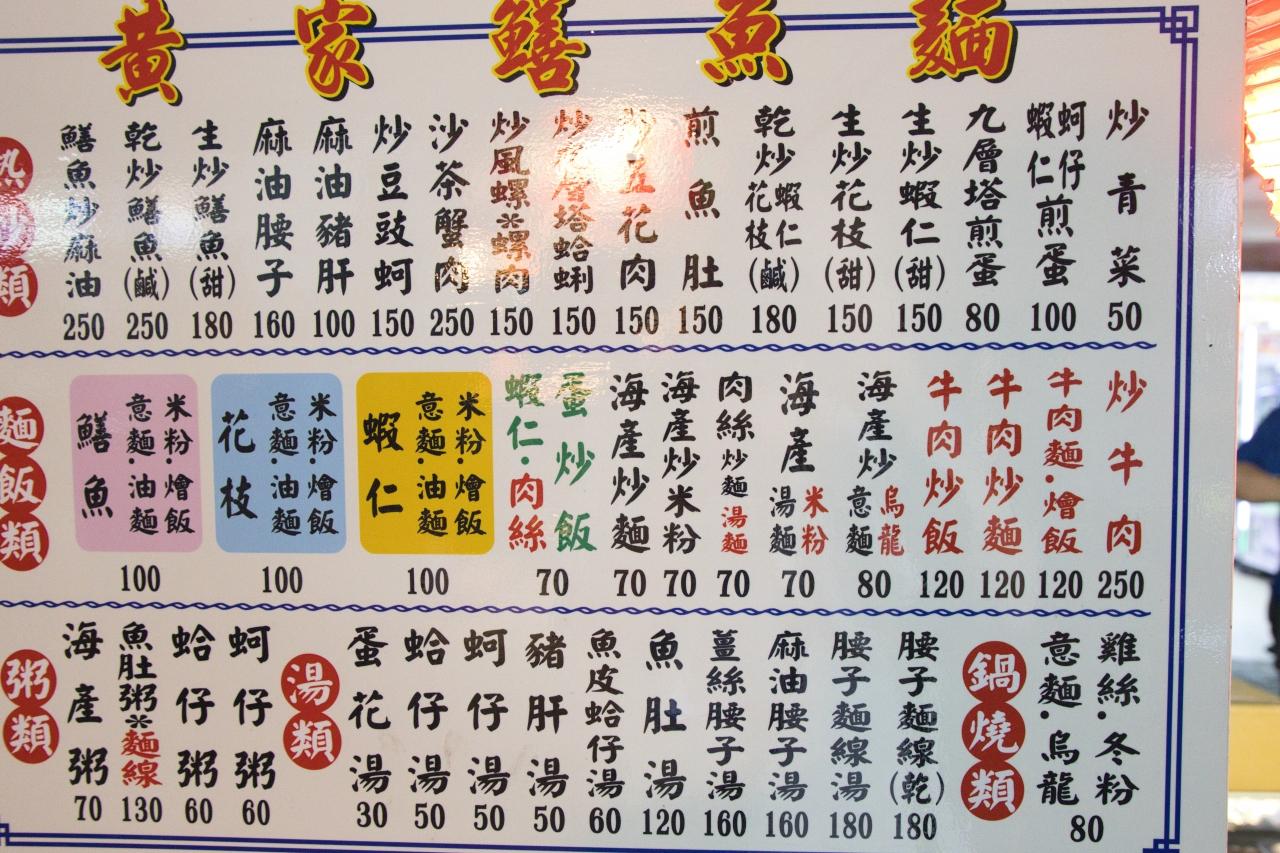 黃家鱔魚麵
熱炒類
鱔魚炒麻油 250
乾炒鱔魚(鹹) 250
生炒鱔魚(甜) 180
麻油腰子 160
麻油豬肝 100
炒豆豉蚵 150
沙茶蟹肉 250
炒風螺※螺肉 150
炒九層塔蛤蜊 150
炒五花肉 150
煎魚肚 150
乾炒花枝蝦仁(鹹) 180
生炒花枝(甜) 150
生炒蝦仁(甜) 150
九層塔煎蛋 80
蝦仁蚵仔煎蛋 100
炒青菜 50
麵飯類
鱔魚 意麵·油麵 米粉·燴飯 100
花枝 意麵·油麵 米粉·燴飯 100
蝦仁 意麵·油麵 米粉·燴飯 100
蝦仁·肉絲 蛋炒飯 70
海產炒麵 70
海產炒米粉 70
肉絲炒麵湯麵 70
海產湯麵米粉 70
海產炒意麵烏龍 80
牛肉炒飯 120
牛肉炒麵 120
牛肉麵·燴飯 120
炒牛肉 250
粥類
海產粥 70
魚肚粥※麵線 130
蛤仔粥 60
蚵仔粥 60
湯類
蛋花湯 30
蛤仔湯 50
蚵仔湯 50
豬肝湯 50
魚皮蛤仔湯 60
魚肚湯 120
薑絲腰子湯 160
麻油腰子湯 160
腰子麵線湯 180
腰子麵線(乾) 180
鍋燒類
意麵·烏龍 雞絲·冬粉 80